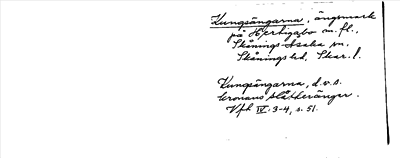 Kungsängarna, ängsmark
på Hertigabo m. fl.,
Skånings-Asaka sn.
Skånings hd, Skar. l.
Kungsängarna, d.v.s.
kronans slåtteränger.
Vfh IV. 3-4, s. 51.